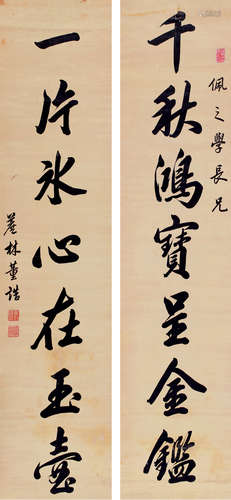 佩之學長兄
千秋鴻寶呈金鑑
一片冰心在玉壺
蔗林董誥